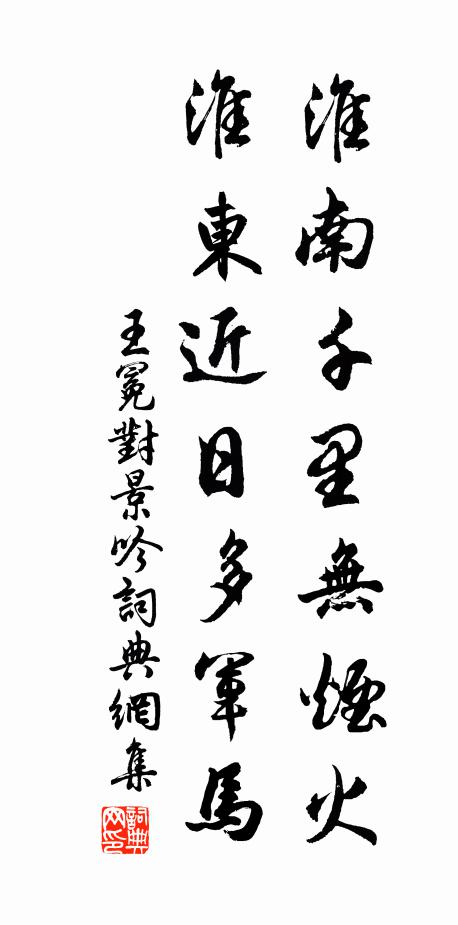 淮南千里無煙火
淮東近日多軍馬
王冕對景吟詞典網集
詞典网印